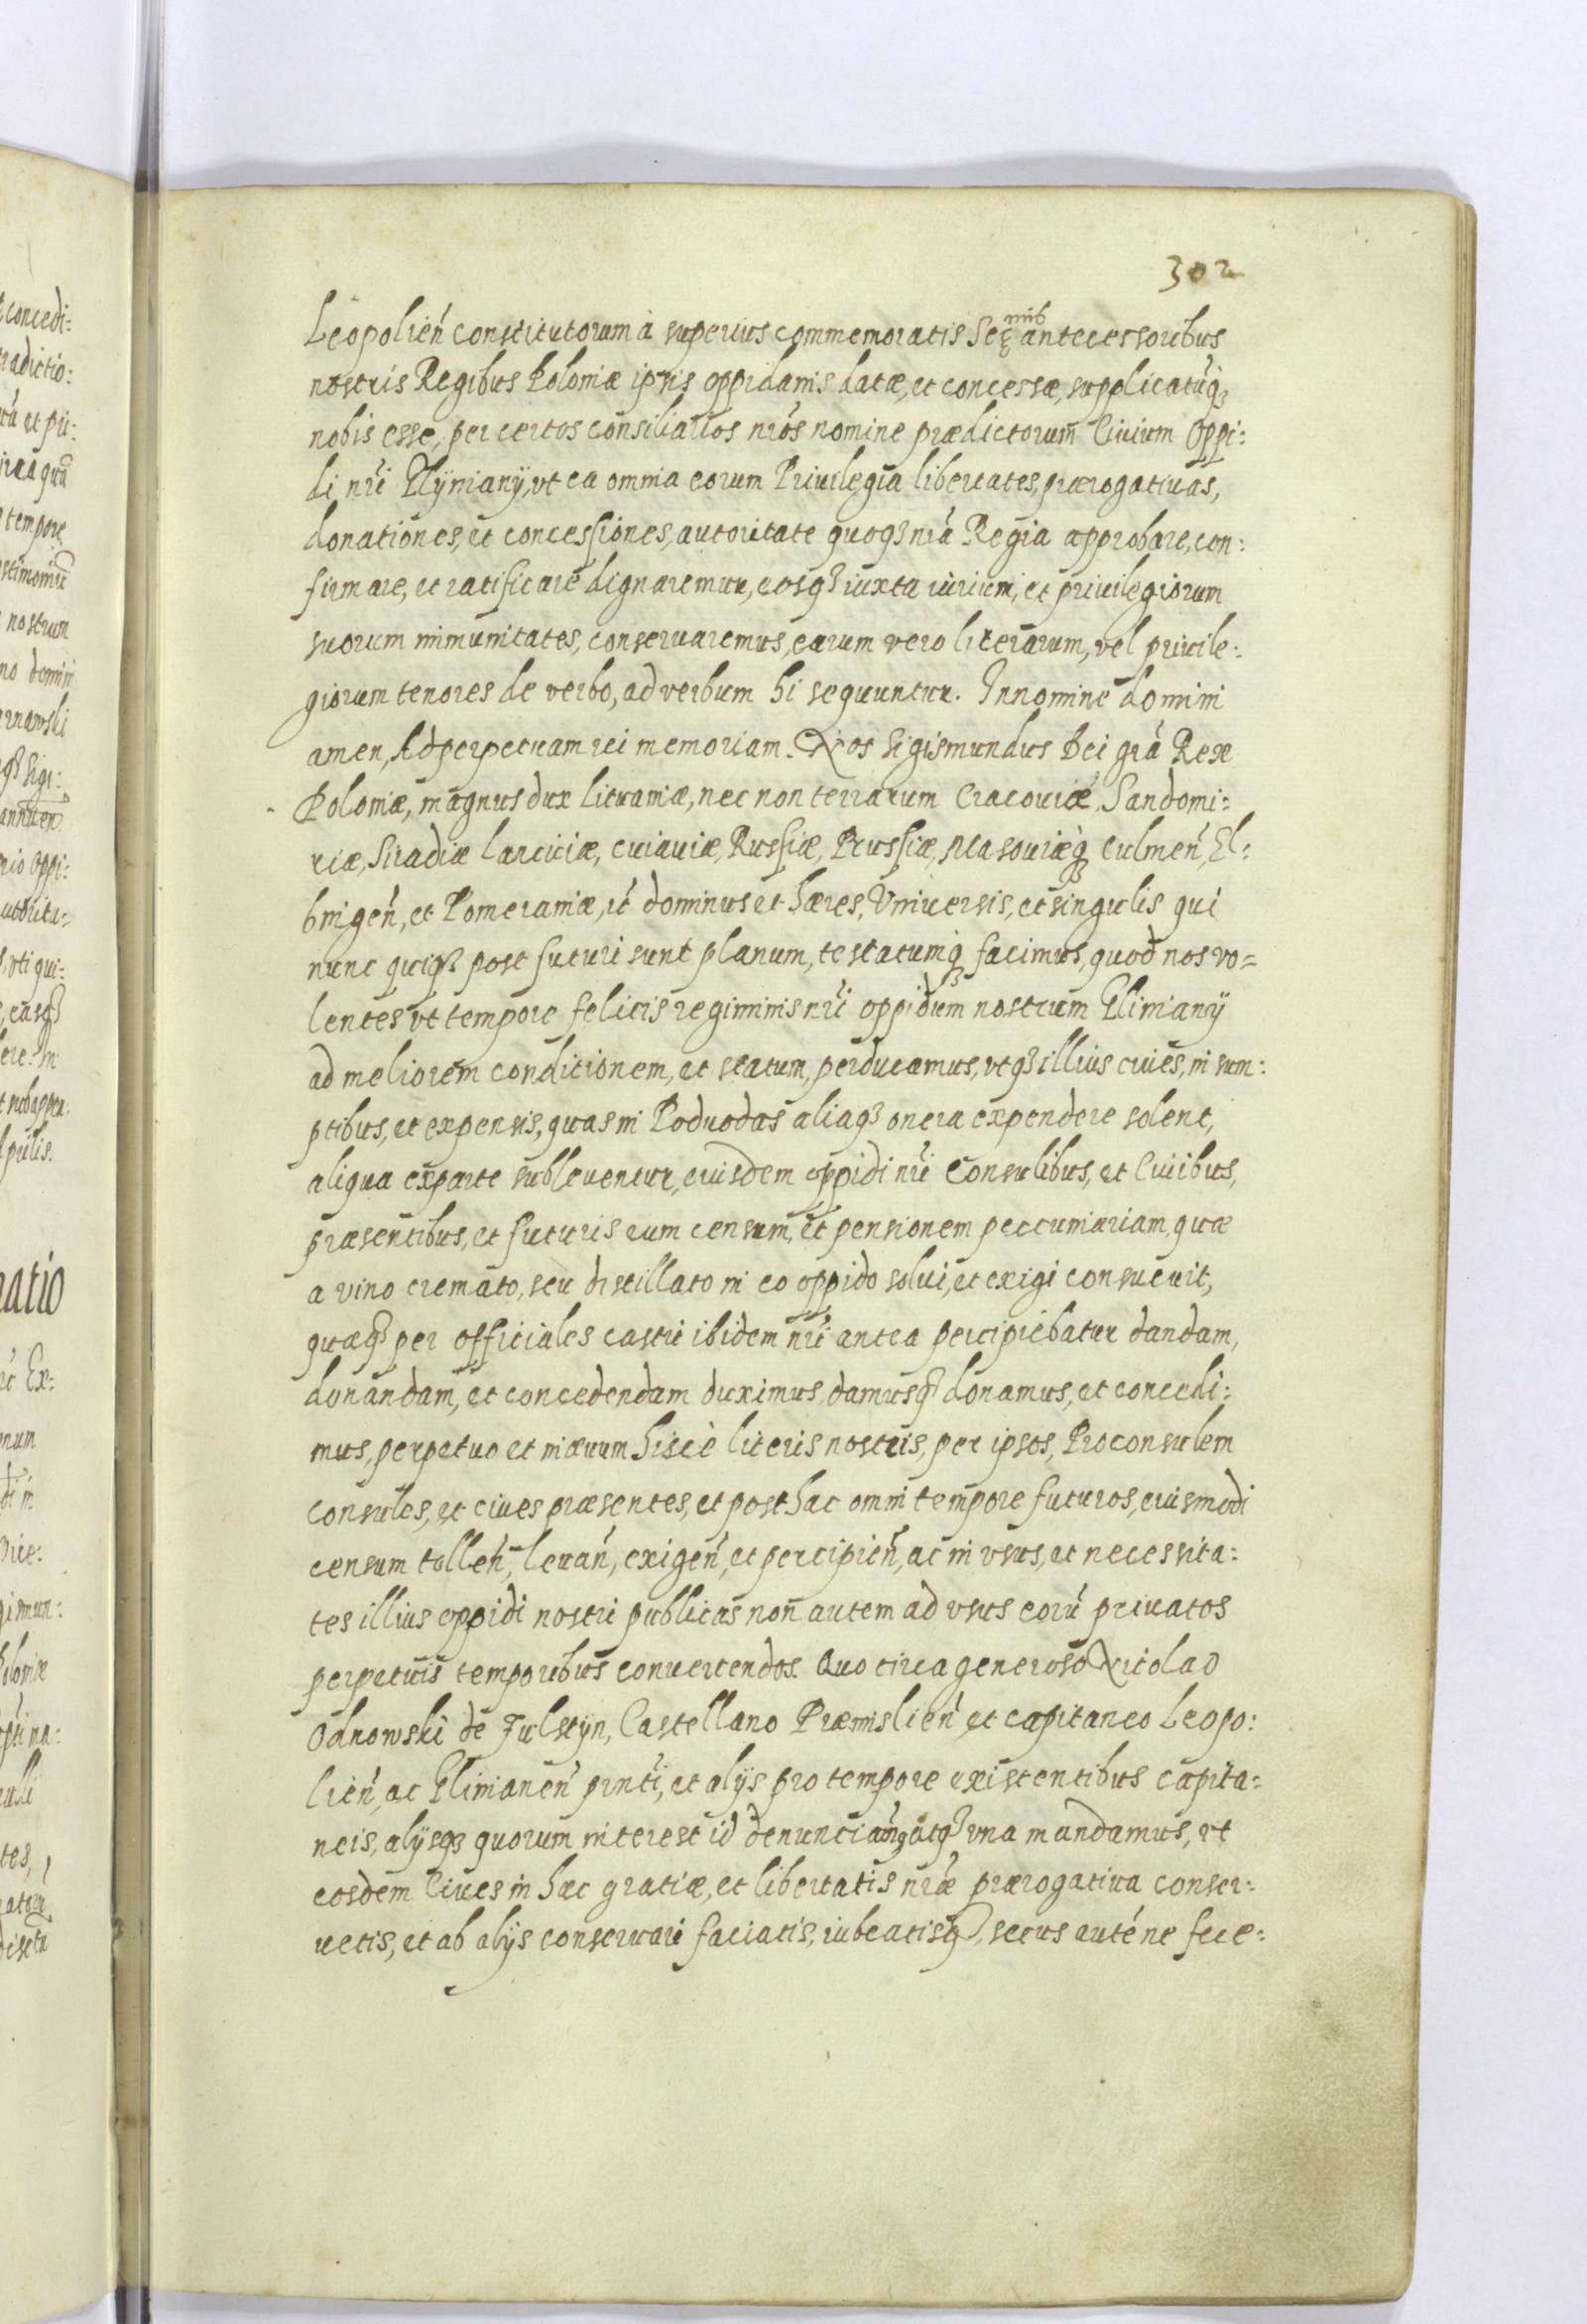 302
Leopolień constitutorum à superius commemoratis Ser̨mis antecessoribus
nostris Regibus Poloniæ ipsis oppidanis datæ, et concessæ, supplicatūq̨
nobis esse, per certos consiliarios nr̄os nomine prædictorum Ciuium Oppi:
di nr̄i Glÿnianÿ, vt ea omnia eorum Priuilegia libertates, prærogatiuas,
donationes, et concessiones, autoritate quoq̨ nr̄a Regia approbare, con:
firmare, et ratificare dignaremur, eosq̨ iuxta iurium, et priuilegiorum
suorum immunitates, conseruaremus, earum vero literarum, vel priuile:
giorum tenores de verbo, ad verbum hi sequuntur. In nomine domini
amen, Ad perpetuam rei memoriam. Nos Sigismundus Dei gr̄a Rex
Poloniæ, magnus dux Lituaniæ, nec non terrarum Cracouiæ, Sandomi:
riæ, Siradiæ Lanciciæ, Cuiauiæ, Russiæ, Prussiæ, Masouiæq̨ Culmeń, El:
bingeń, et Pomeraniæ, rć dominus et hæres, Vniuersis, et singulis qui
nunc quiq̨ post futuri sunt planum, testatumq̨ facimus, quod nos vo=
lentes vt tempore felicis regiminis nr̄i oppidum nostrum Glinianÿ
ad meliorem conditionem, et statum, perducamus, vtq̨ illius ciues, in sum:
ptibus, et expensis, quas in Poduodas aliaq̨ onera expendere solent,
aliqua ex parte subleuentur, eiusdem oppidi nr̄i Consulibus, et Ciuibus,
præsentibus, et futuris eum censum, et pensionem peccuniariam, quæ
a vino cremato, seu distillato in eo oppido solui, et exigi consueuit,
quæq̨ per officiales castri ibidem nr̄i antea percipiebatur dandam,
donandam, et concedendam duximus, damusq̨ donamus, et concedi:
mus, perpetuo et in æuum hisce literis nostris, per ipsos, Proconsulem
consules, et ciues præsentes, et post hac omni tempore futuros, eiusmodi
censum tolleń, leuań, exigeń, et percipień, ac in vsus, et necessita:
tes illius oppidi nostri publicas non autem ad vsus eorū priuatos
perpetuis temporibus conuertendos. Quo circa generoso Nicolao
Odnowski de Fulstÿn, Castellano Præmislień, et capitaneo Leopo:
lień, ac Glinianeń pnt̄i, et alÿs pro tempore existentibus capita=
neis, alÿsq̨ quorum interest id denunciamꝰ atq̨ vna mandamus, vt
eosdem Ciues in hac gratiæ, et libertatis nr̄æ prærogatiua conser:
uetis, et ab alÿs conseruari faciatis, iubeatisq̨, secus auté ne fece: